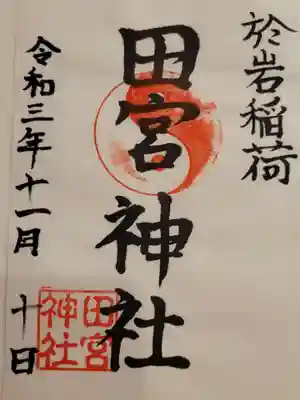 於岩稲荷
田宮神社
令和三年十一月十日
田宮
神社